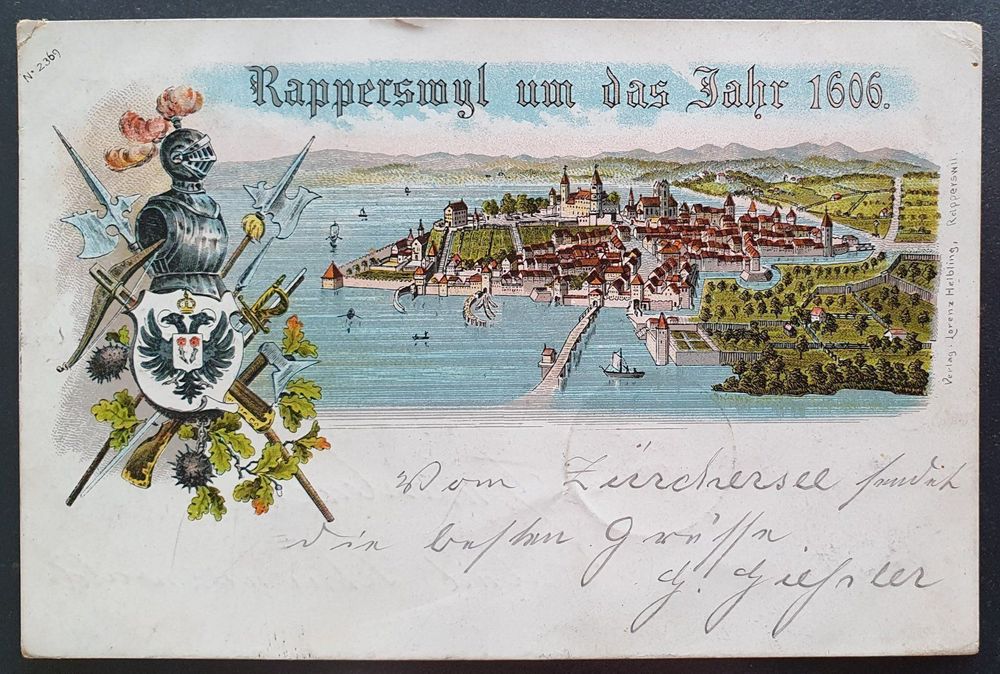 Nº 2369
Rapperswyl um das Jahr 1606.
Verlag · Lorenz Helbling, Rapperswil.
Vom Zürchersee sendet
die besten Grüsse
G. Giessler